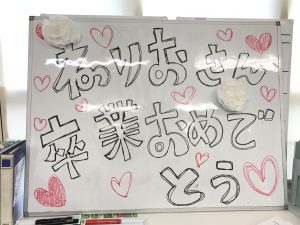 ねりおさん
卒業おめで
とう